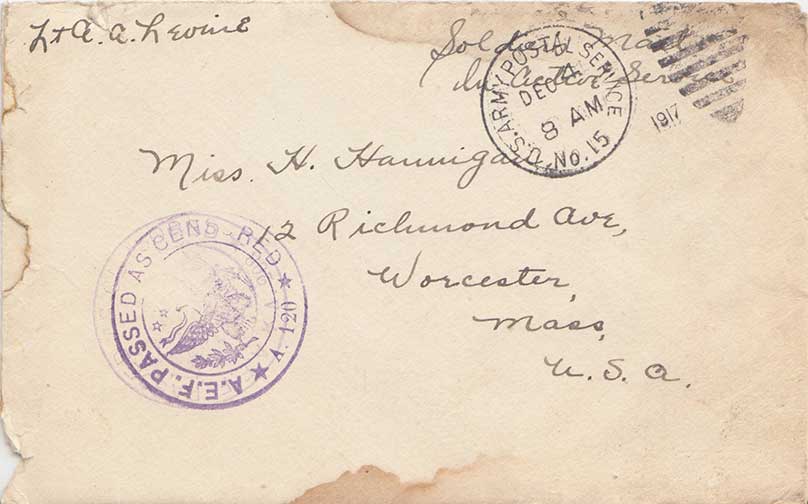 Lt A. A. Levine
Soldier's Mail
In Active Service
U.S. ARMY POSTAL SERVICE
DEC 4
8 AM
No. 15
1917
Miss. H. Hannigan
12 Richmond Ave,
Worcester,
Mass,
U. S. A.
A.E.F. PASSED AS CENSORED
A. 120